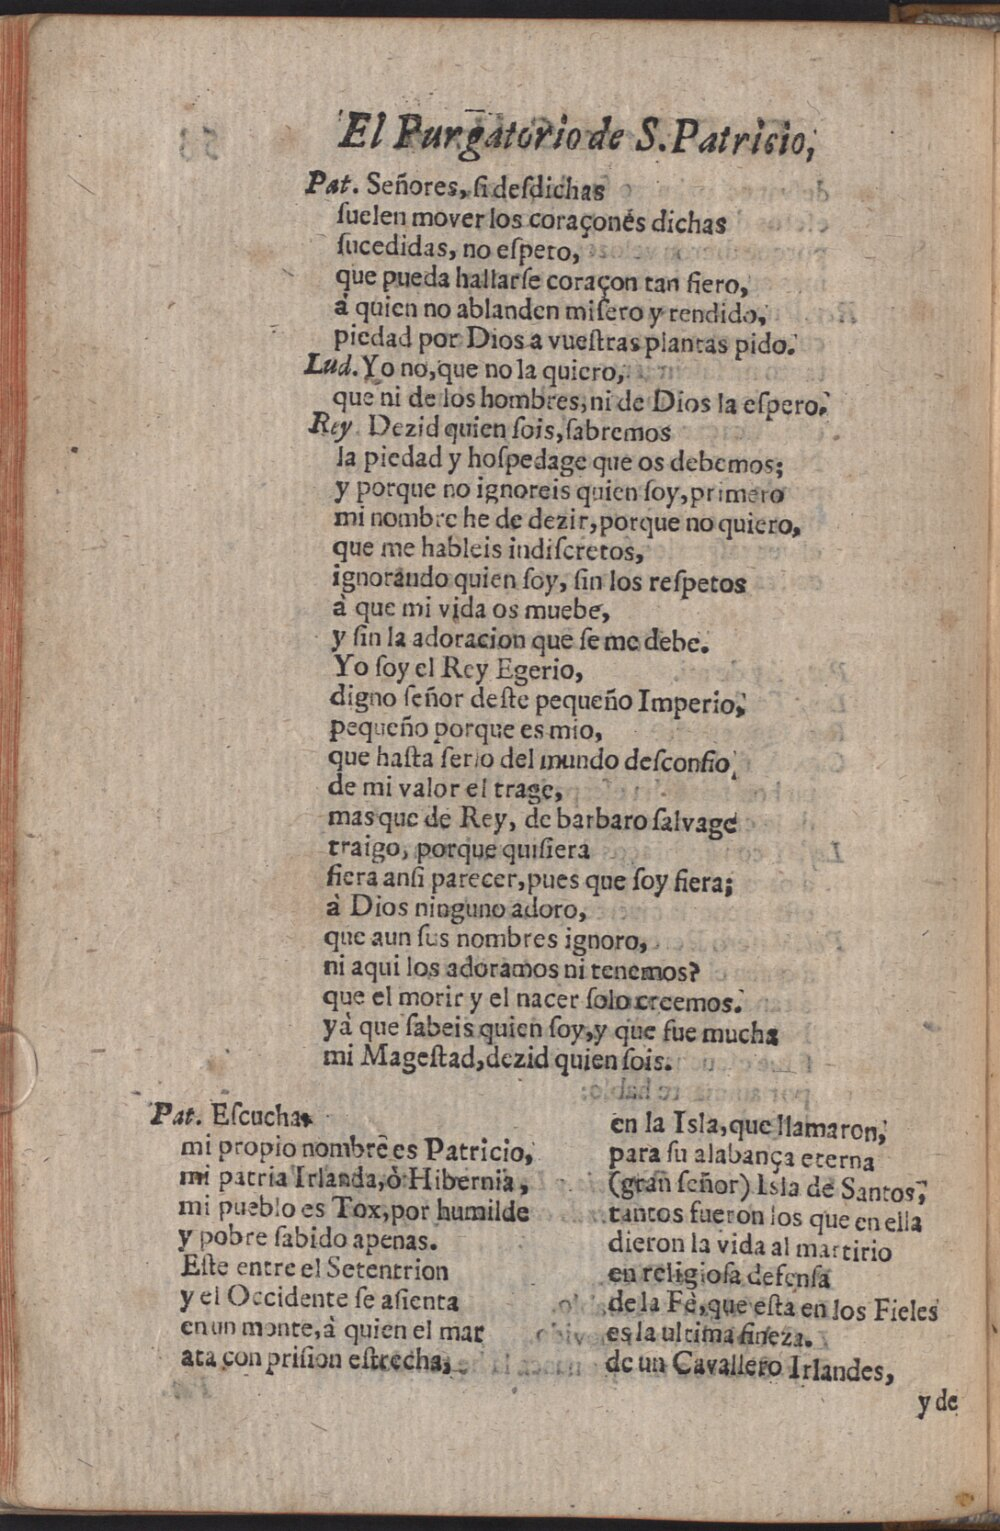 El Purgatorio de S. Patricio,
Pat. Señores, si desdichas
suelen mover los coraçonés dichas
sucedidas, no espero,
que pueda hallarse coraçon tan fiero,
à quien no ablanden misero y rendido,
piedad por Dios a vuestras plantas pido.
Lud. Yo no, que no la quiero,
que ni de los hombres, ni de Dios la espero.
Rey Dezid quien sois, sabremos
la piedad y hospedage que os debemos;
y porque no ignoreis quien soy, primero
mi nombre he de dezir, porque no quiero,
que me hableis indiscretos,
ignorando quien soy, sin los respetos
à que mi vida os muebe,
y sin la adoracion que se me debe.
Yo soy el Rey Egerio,
digno señor deste pequeño Imperio,
pequeño porque es mio,
que hasta serlo del mundo desconfio,
de mi valor el trage,
mas que de Rey, de barbaro salvage
traigo, porque quisiera
fiera ansi parecer, pues que soy fiera;
à Dios ninguno adoro,
que aun sus nombres ignoro,
ni aqui los adoramos ni tenemos?
que el morir y el nacer solo creemos.
yà que sabeis quien soy, y que fue mucha
mi Magestad, dezid quien sois.
Pat. Escucha,
mi propio nombre es Patricio,
mi patria Irlanda, ò Hibernia,
mi pueblo es Tox, por humilde
y pobre sabido apenas.
Este entre el Setentrion
y el Occidente se asienta
en un monte, à quien el mar
ata con prision estrecha,
en la Isla, que llamaron,
para su alabança eterna
(gran señor) Isla de Santos,
tantos fueron los que en ella
dieron la vida al martirio
en religiosa defensa
de la Fè, que esta en los Fieles
es la ultima fineza.
de un Cavallero Irlandes,
y de